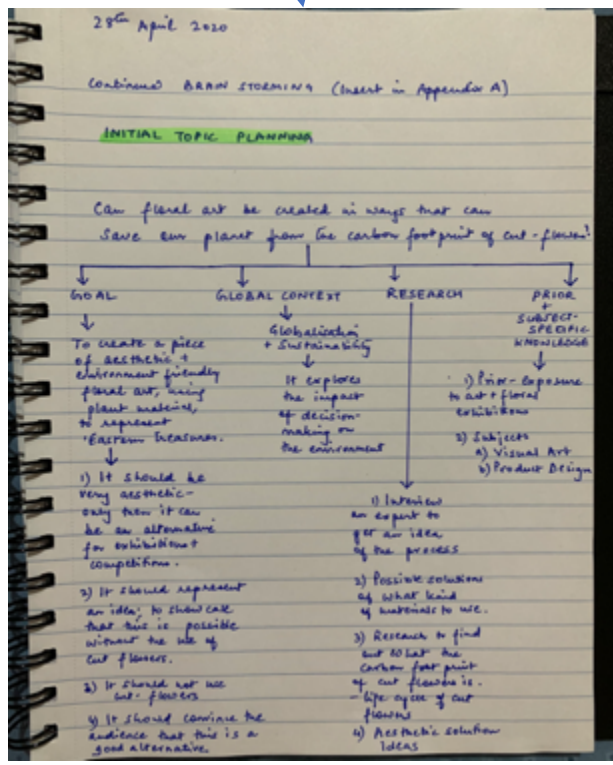 28th April 2020
Continued BRAIN STORMING (Insert in Appendix A)
INITIAL TOPIC PLANNING
Can floral art be created in ways that can
Save our planet from the carbon footprint of cut-flowers?
GOAL
To create a piece
of aesthetic +
environment friendly
floral art, using
plant material,
to represent
'Eastern Treasures.
1) It should be
very aesthetic-
only then it can
be an alternative
for exhibitions +
competitions.
2) It should represent
an idea, to showcase
that this is possible
without the use of
cut flowers.
3) It should not use
cut-flowers
4) It should convince the
audience that this is a
good alternative.
GLOBAL CONTEXT
Globalisation
+ Sustainability
It explores
the impact
of decision-
making on
the environment
RESEARCH
1) Interview
an expert to
get an idea
of the process
2) Possible solutions
of what kind
of materials to use.
3) Research to find
out what the
carbon foot print
of cut flowers is.
- life cycle of cut
flowers
4) Aesthetic solution
Ideas
PRIOR
+
SUBJECT-
SPECIFIC
KNOWLEDGE
1) Prior-exposure
to art + floral
exhibitions
2) Subjects
a) Visual Art
b) Product Design